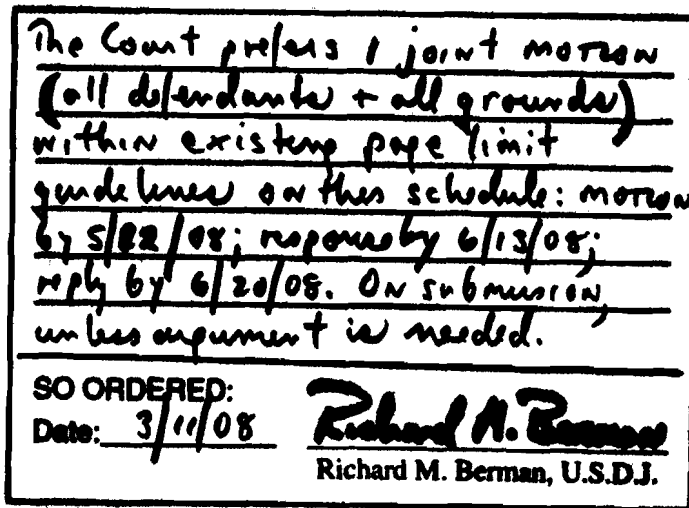 The Court prefers 1 joint motion
(all defendants + all grounds)
within existing page limit
guidelines on this schedule: motion
by 5/22/08; response by 6/13/08;
reply by 6/20/08. On submission,
unless argument is needed.
SO ORDERED:
Date: 3/11/08
Richard M. Berman
Richard M. Berman, U.S.D.J.